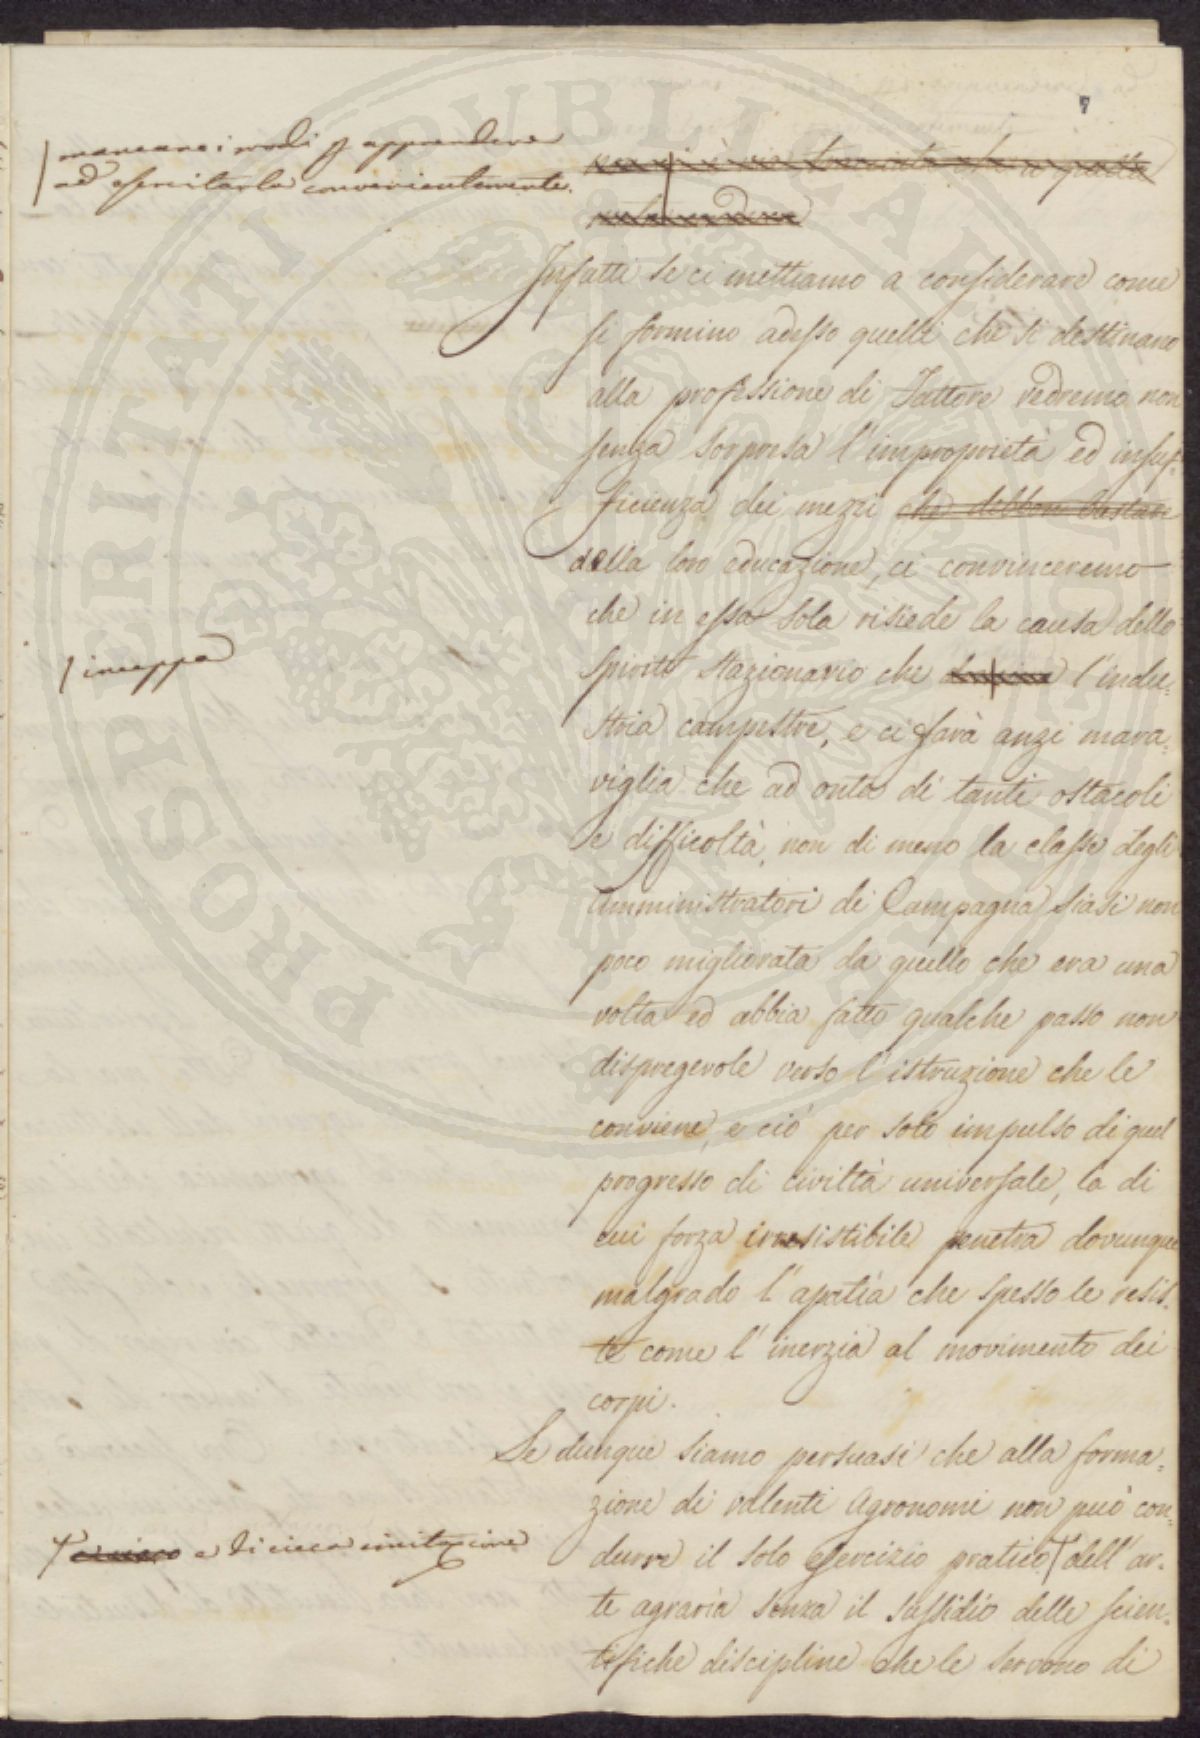 7
mancano i modi p apprendere
ed esercitarla convenientemente.
Infatti se ci mettiamo a considerare come
si formino adesso quelli che si destinano
alla professione di Fattore vedremo non
senza sorpresa l'improprietà ed insuf-
ficienza dei mezzi che debbon bastare
della loro educazione, ci convinceremo
che in essa sola risiede la causa dello
spirito stazionario che l'indu-
inceppa
stria campestre, e ci farà anzi mara-
viglia che ad onta di tanti ostacoli
e difficoltà, non di meno la classe degli
Amministratori di Campagna siasi non
poco migliorata da quello che era una
volta ed abbia fatto qualche passo non
dispregevole verso l'istruzione che le
conviene, e ciò per solo impulso di quel
progresso di civiltà universale, la di
cui forza irresistibile penetra dovunque
malgrado l'apatia che spesso le resis-
te come l'inerzia al movimento dei
corpi.
Se dunque siamo persuasi che alla forma-
zione di valenti Agronomi non può con-
durre il solo esercizio pratico dell'ar-
e di cieca imitazione
te agraria senza il sussidio delle scien-
tifiche discipline che le servono di
PROSPERITATI PUBLICAE AUGENDAE